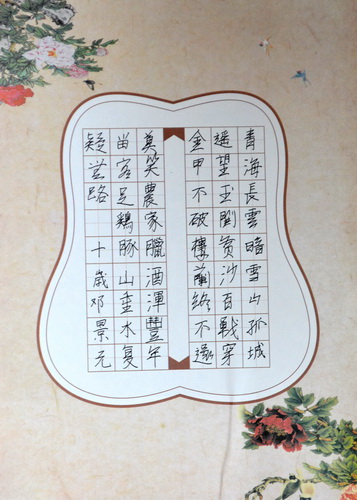 青海長雲暗雪山孤城
遥望玉關黄沙百戰穿
金甲不破樓蘭終不還
莫笑農家臘酒渾豐年
畄客足鷄豚山重水复
疑無路 十歲邓景元